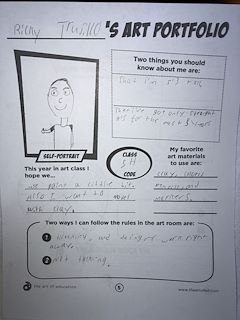 Ricky Trujillo 'S ART PORTFOLIO
Two things you should
know about me are:
that I'm
got only straight
A's for the past 3 years
SELF-PORTRAIT
This year in art class I
hope we...
we paint a little bit.
Also I want to
with clay.
CLASS
5H
CODE
My favorite
art materials
to use are:
clay,
and
markers.
Two ways I can follow the rules in the art room are:
1 listening, and doing work right
away.
2 Not talking.
the art of education
5